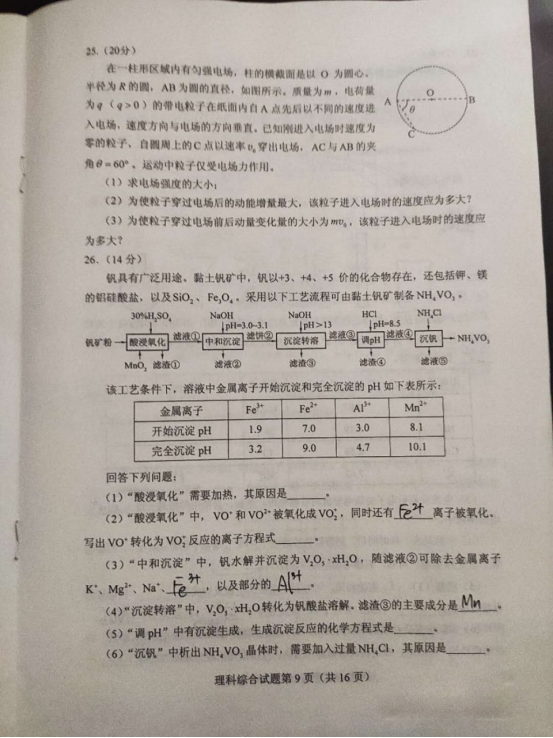 25.（20分）
在一柱形区域内有匀强电场，柱的横截面是以 O 为圆心，
半径为 R 的圆，AB 为圆的直径，如图所示。质量为 m，电荷量
为 q（q>0）的带电粒子在纸面内自 A 点先后以不同的速度进
入电场，速度方向与电场的方向垂直。已知刚进入电场时速度为
零的粒子，自圆周上的 C 点以速率 v₀ 穿出电场，AC 与 AB 的夹
角 θ＝60°。运动中粒子仅受电场力作用。
A O B θ C
（1）求电场强度的大小；
（2）为使粒子穿过电场后的动能增量最大，该粒子进入电场时的速度应为多大？
（3）为使粒子穿过电场前后动量变化量的大小为 mv₀，该粒子进入电场时的速度应
为多大？
26.（14 分）
钒具有广泛用途。黏土钒矿中，钒以+3、+4、+5 价的化合物存在，还包括钾、镁
的铝硅酸盐，以及 SiO₂、Fe₃O₄。采用以下工艺流程可由黏土钒矿制备 NH₄VO₃。
30%H₂SO₄ NaOH NaOH HCl NH₄Cl
pH=3.0~3.1 pH>13 pH=8.5
钒矿粉 酸浸氧化 滤液① 中和沉淀 滤饼② 沉淀转溶 滤液③ 调pH 滤液④ 沉钒 NH₄VO₃
MnO₂ 滤渣① 滤液② 滤渣③ 滤渣④ 滤液⑤
该工艺条件下，溶液中金属离子开始沉淀和完全沉淀的 pH 如下表所示：
金属离子 Fe³⁺ Fe²⁺ Al³⁺ Mn²⁺
开始沉淀 pH 1.9 7.0 3.0 8.1
完全沉淀 pH 3.2 9.0 4.7 10.1
回答下列问题：
（1）“酸浸氧化”需要加热，其原因是______。
（2）“酸浸氧化”中，VO⁺ 和 VO²⁺ 被氧化成 VO₂⁺，同时还有 Fe²⁺ 离子被氧化。
写出 VO⁺ 转化为 VO₂⁺ 反应的离子方程式______。
（3）“中和沉淀”中，钒水解并沉淀为 V₂O₅·xH₂O，随滤液②可除去金属离子
K⁺、Mg²⁺、Na⁺、Fe³⁺，以及部分的 Al³⁺。
（4）“沉淀转溶”中，V₂O₅·xH₂O 转化为钒酸盐溶解。滤渣③的主要成分是 Mn。
（5）“调 pH”中有沉淀生成，生成沉淀反应的化学方程式是______。
（6）“沉钒”中析出 NH₄VO₃ 晶体时，需要加入过量 NH₄Cl，其原因是______。
理科综合试题第 9 页（共 16 页）